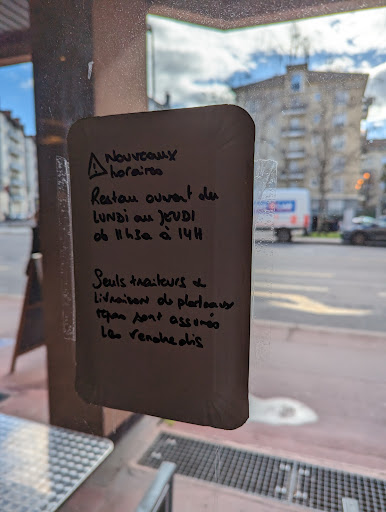 Nouveaux
horaires
Restau ouvert du
LUNDI au JEUDI
de 11h30 à 14H
Seuls traiteurs &
livraison de plateaux
repas sont assurés
les vendredis